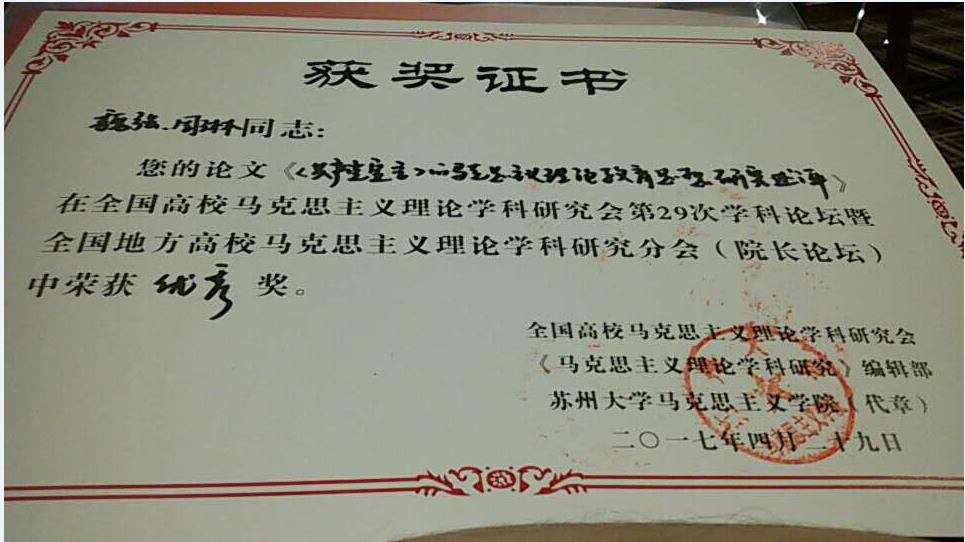 获奖证书
魏强、周琳同志:
您的论文《〈共产党宣言〉的马克思主义理论教育思想研究述评》
在全国高校马克思主义理论学科研究会第29次学科论坛暨
全国地方高校马克思主义理论学科研究分会(院长论坛)
中荣获 优秀 奖。
全国高校马克思主义理论学科研究会
《马克思主义理论学科研究》编辑部
苏州大学马克思主义学院(代章)
二〇一七年四月二十九日